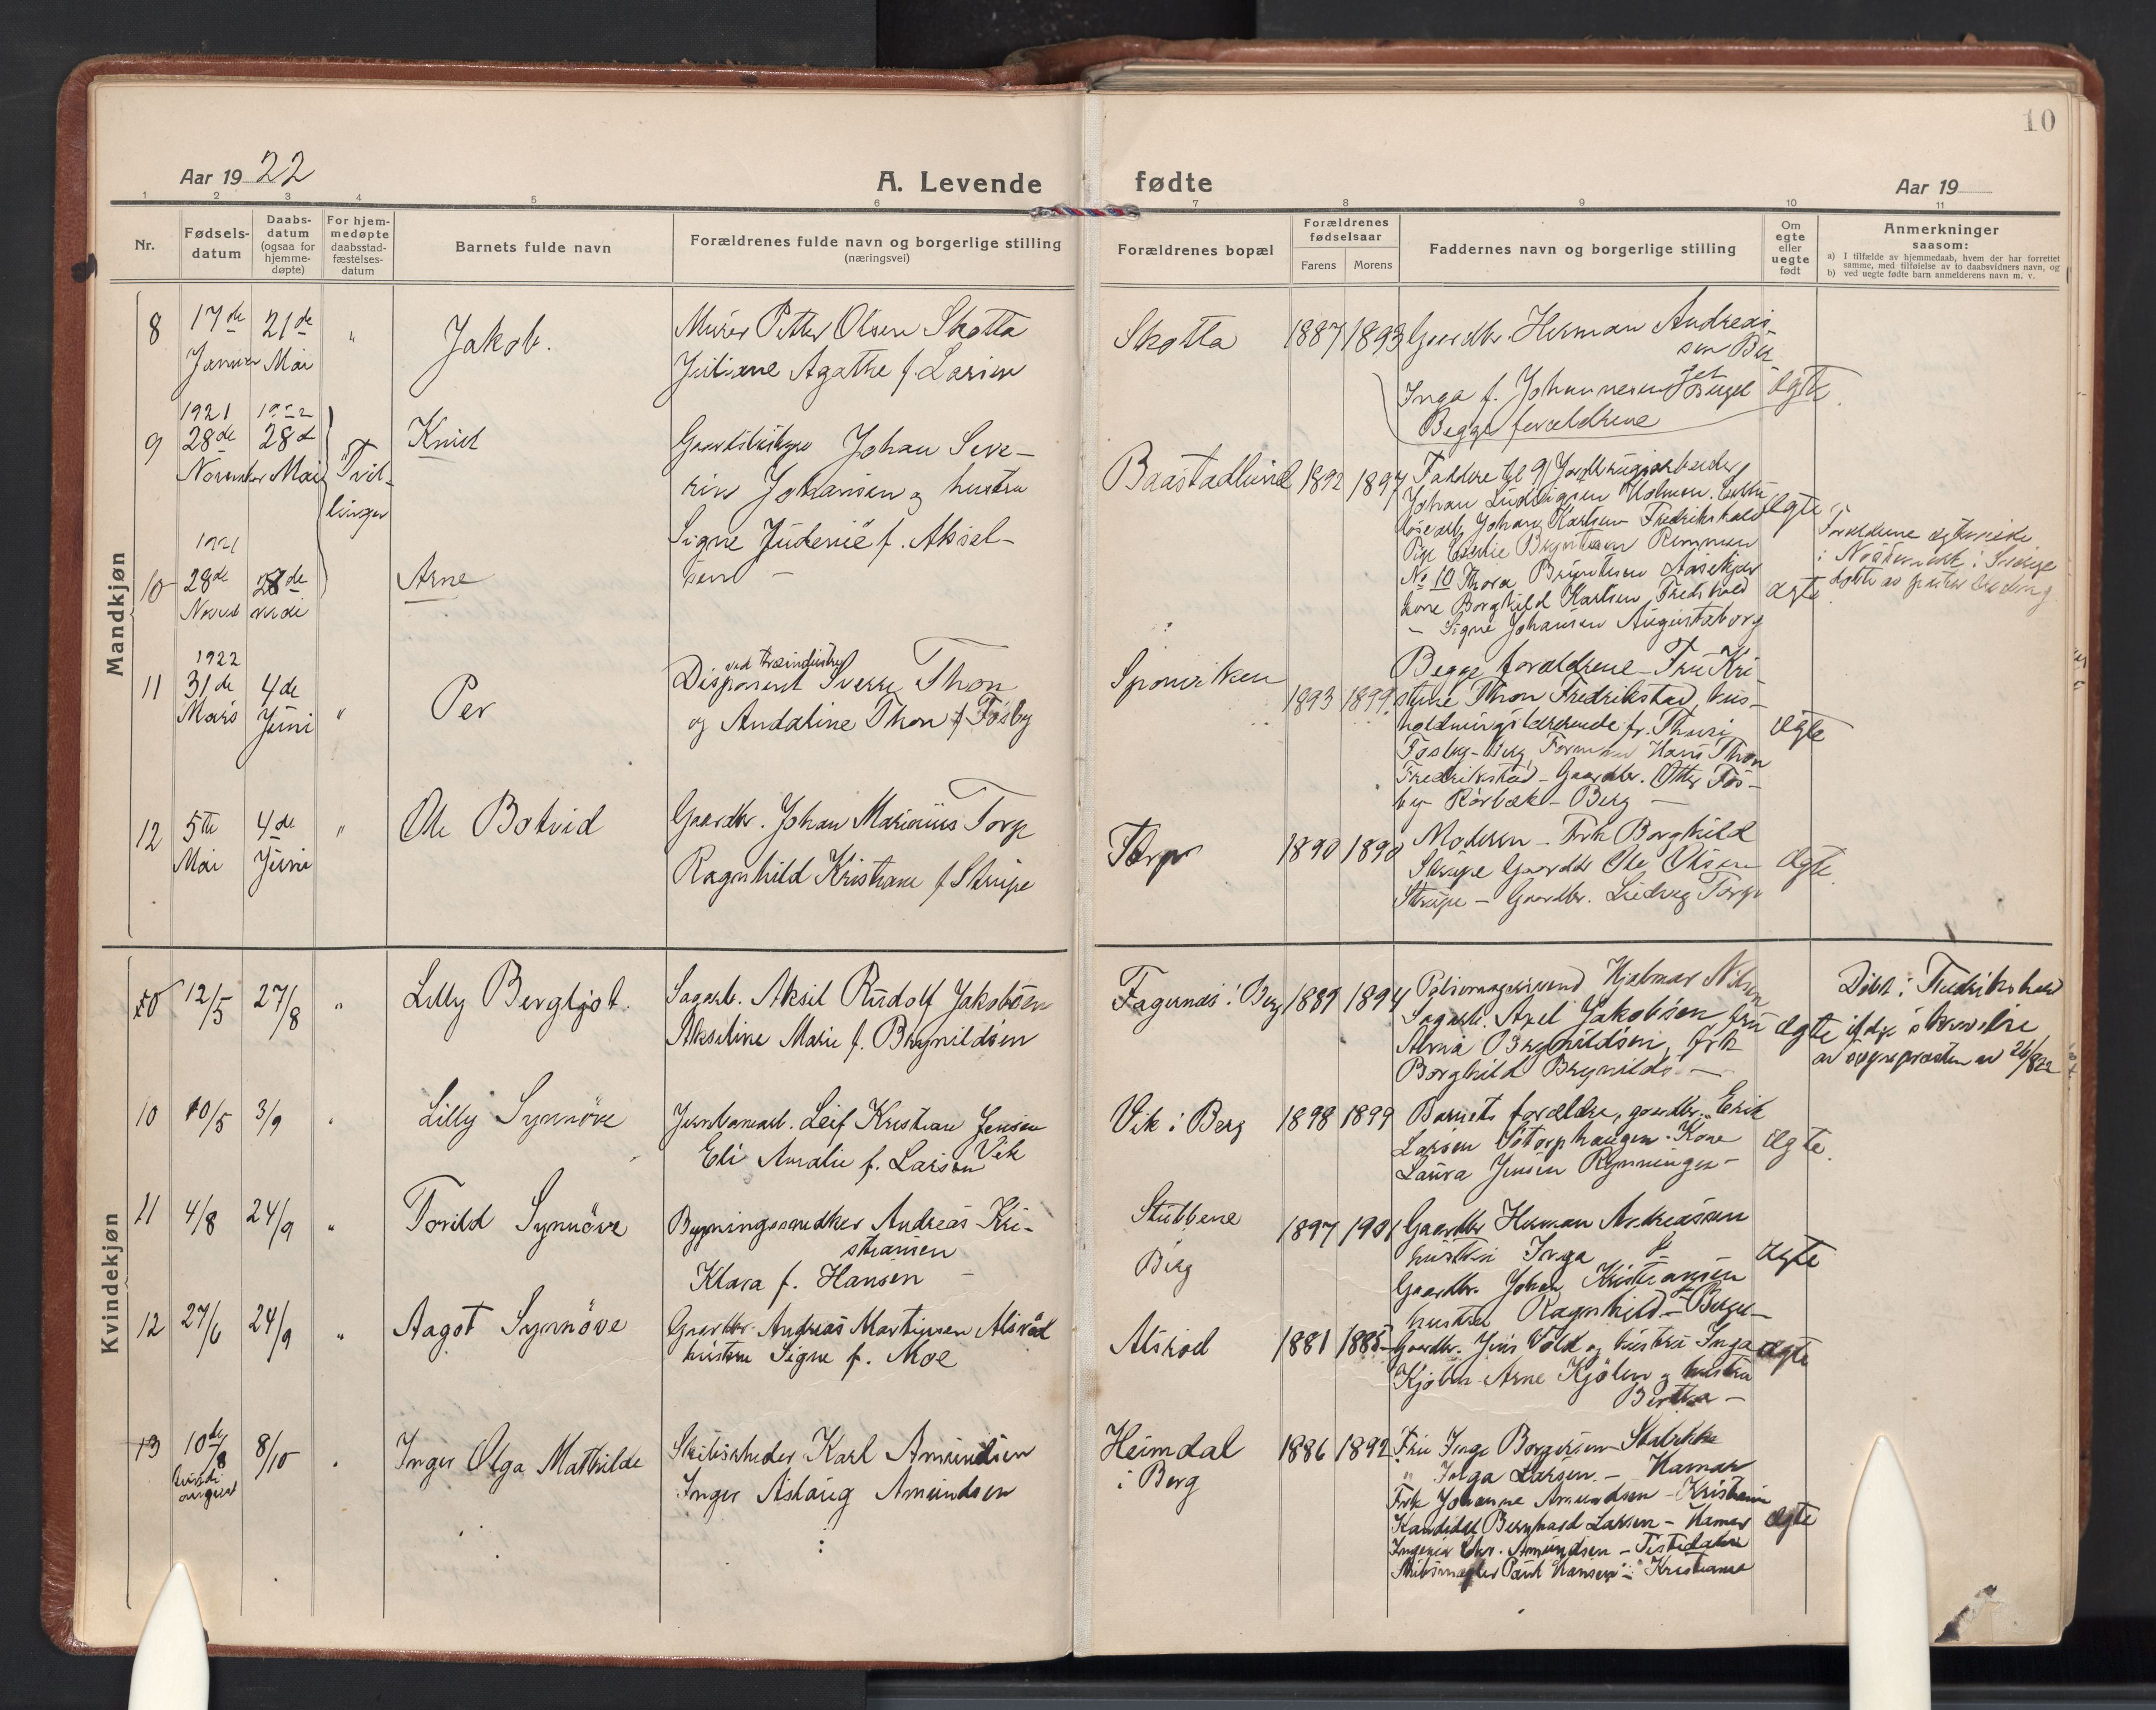 10
Aar 19 22
A. Levende
fødte
Aar 19
1 2 3 4 5 6 7 8 9 10 11
Nr.
Fødsels-
datum
Daabs-
datum
(ogsaa for
hjemme-
døpte)
For hjem-
medøpte
daabsstad-
fæstelses-
datum
Barnets fulde navn
Forældrenes fulde navn og borgerlige stilling
(næringsvei)
Forældrenes bopæl
Forældrenes
fødselsaar
Farens Morens
Faddernes navn og borgerlige stilling
Om
egte
eller
uegte
født
Anmerkninger
saasom:
a) I tilfælde av hjemmedaab, hvem der har forrettet
samme, med tilføielse av to daabsvidners navn, og
b) ved uegte fødte barn anmelderens navn m. v.
Mandkjøn
8
17de
Januar
21de
Mai
"
Jakob.
Murer Petter Olsen Skotta
Juliane Agathe f. Larsen
Skotta
1887 1893
Gaardbr. Herman Andreas-
sen Berg
Inga f. Johannesen
Begge forældrene
Ægte
9
1921
28de
November
1922
28d
Mai
Tvil-
linger
Knut
Johan Seve-
rin Johansen og hustru
Signe f. Aksel-
sen
Baastadlund
1892 1897
Faddere til 9)
Johan Ludvigsen Holmen.
Johan Karlsen Fredrikshald
Pige Brynildsen Remmen
Ægte
10
1921
28de
Novemb
28de
Arne
No 10 Thora Brynildsen
kone Borghild Karlsen, Fredshald
- Signe Johansen Augustaborg
ægte
Forældrene
i i Sverige
11
1922
31de
Mars
4de
Juni
"
Per
ved træindustri
Disponent Sverre Thon
og Andaline Thon f Fosby
Sponviken
1893 1899
Begge forældrene - Fru Kri-
stine Thon Fredrikstad, hus-
holdningslærerinde fr. Thora
Fosby - Berg, Formann Hans Thon
Fredrikstad - Gaardbr. Otto Fos-
by Rörbæk - Berg
Ægte
12
5te
Mai
4de
Juni
"
Ole Botvid
Gaardbr. Johan Marinius Torp
Ragnhild Kristiane f Strupe
Torp
1890 1890
Moderen - Frk Borghild
Strupe Gaardbr Ole Olsen
Strupe - Gaardbr. Ludvig Torp
Ægte
Kvindekjøn
12/5
27/8
"
Lilly Bergljot.
Sagarb. Aksel Rudolf Jakobsen
Akseline Marie f. Brynildsen
Fagernæs i Berg
1889 1894
Hjalmar Nilsen
Sagarb. Axel Jakobsen fru
Alma Brynildsen, Frk
Borghild Brynilds -
Ægte
Döbt i Fredrikshald
ifølge skrivelse
av sognepræsten av 26/8 22
10
10/5
3/9
Lilly Synnöve
Jernbanearb. Leif Kristian Jensen
Vik
Eli Amalie f. Larsen
Vik i Berg
1898 1899
Barnets forældre, gaardbr. Erik
Larsen Sötorphaugen. Kone
Laura Jensen Rynninger -
Ægte
11
4/8
24/9
"
Torild Synnöve
Bygningssnedker Andreas Kri-
stiansen
Klara f. Hansen -
Stubbene
Berg
1897 1901
Gaardbr Herman Andreassen
hustru Inga
Gaardbr. Johan Kristiansen
hustru Ragnhild - Berg -
Ægte
12
27/6
24/9
"
Aagot Synnöve
Gaardbr. Andreas Martinsen Alsröd
hustru Signe f. Moe
Alsröd
1881 1885
Gaardbr. Jens Vold og hustru Inga
Kjölen - Arne Kjölen og hustru
Bertha -
Ægte
13
10de/8
8/10
Inger Olga Mathilde
Skibsrheder Karl Amundsen
Inger Aslaug Amundsen
Heimdal
i Berg
1886 1892
Fru Inga Borgersen Stabekk
" Inga Larsen - Hamar
Frk Johanne Amundsen - Kristiania
Kandidat Bernhard Larsen - Hamar
Ingeniør Chr. Amundsen - Tistedalen
Skibsmægler Paul Hansen - Kristiania
Ægte